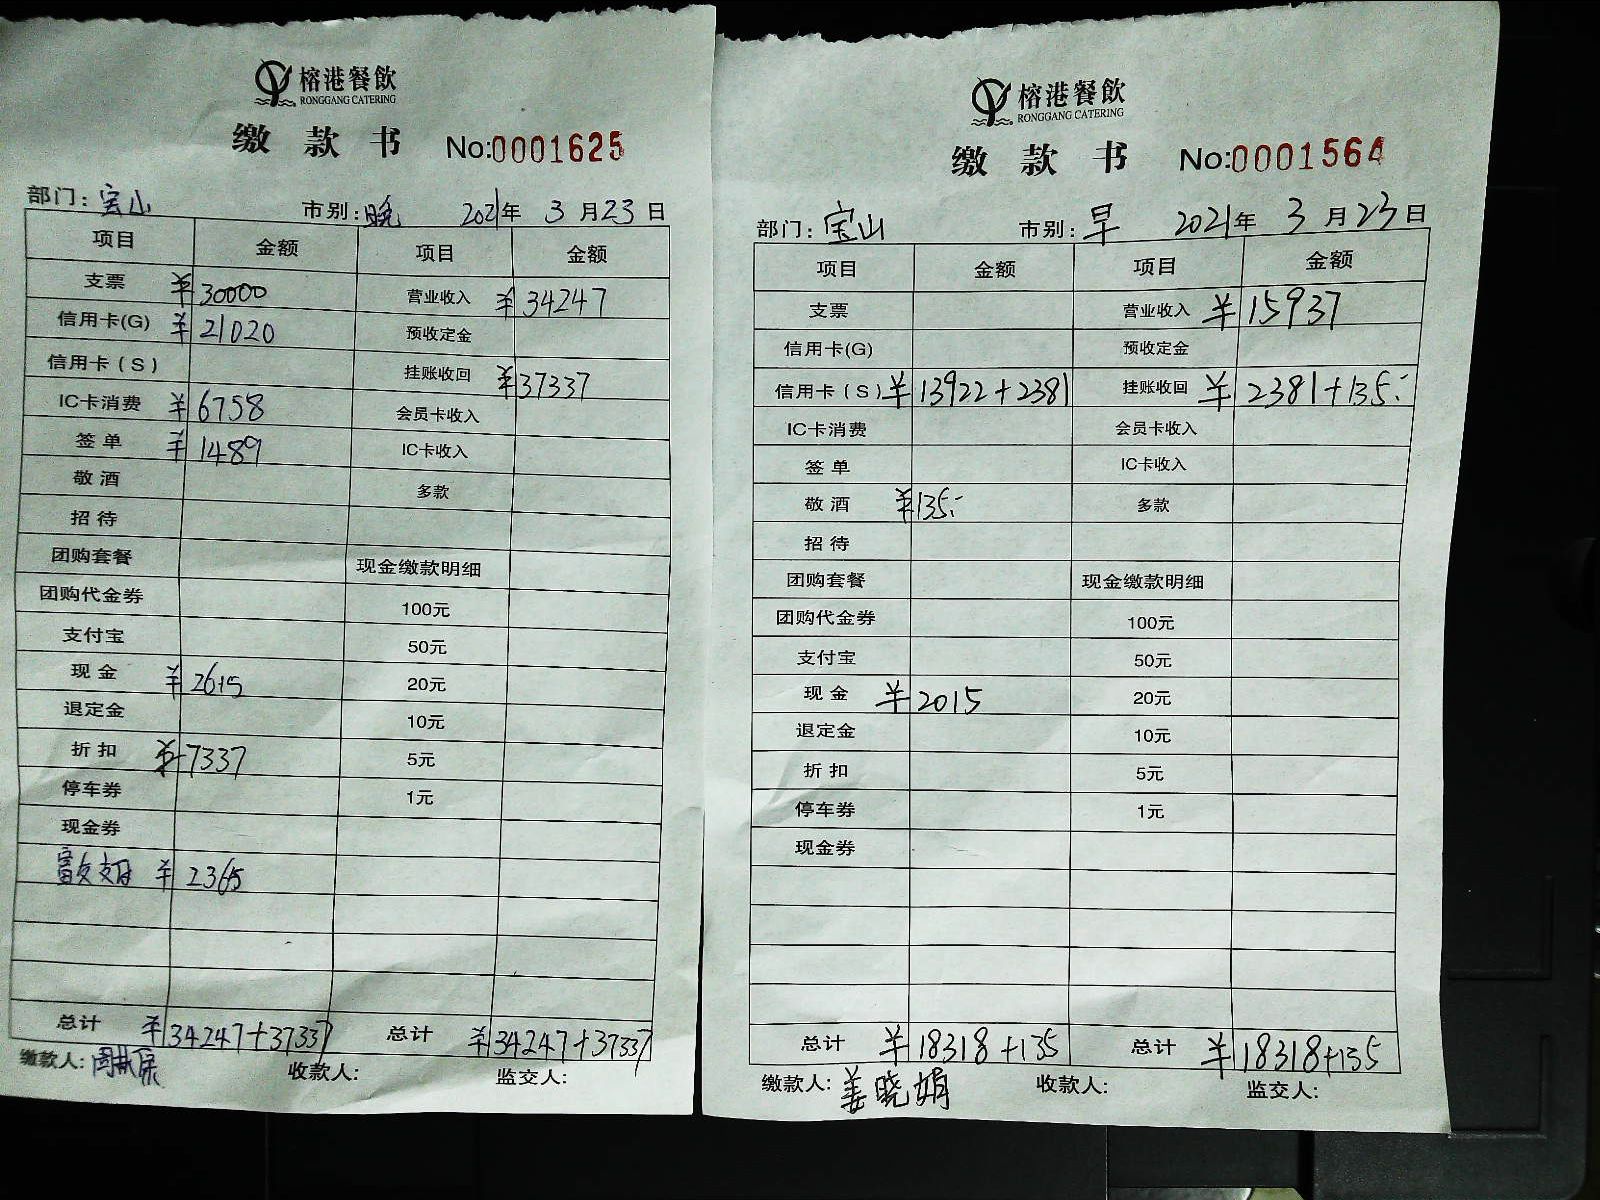 榕港餐飲
RONGGANG CATERING
缴款书 No:0001625
部门: 宝山 市别: 晚 2021年 3月23日
项目 金额 项目 金额
支票 ¥30000 营业收入 ¥34247
信用卡(G) ¥21020 预收定金
信用卡(S) 挂账收回 ¥37337
IC卡消费 ¥6758 会员卡收入
签单 ¥1489 IC卡收入
敬酒 多款
招待
团购套餐 现金缴款明细
团购代金券 100元
支付宝 50元
现金 ¥2615 20元
退定金 10元
折扣 ¥7337 5元
停车券 1元
现金券
富友支付 ¥2365
总计 ¥34247+37337 总计 ¥34247+37337
缴款人: 收款人: 监交人:
榕港餐飲
RONGGANG CATERING
缴款书 No:0001564
部门: 宝山 市别: 早 2021年 3月23日
项目 金额 项目 金额
支票 营业收入 ¥15937
信用卡(G) 预收定金
信用卡(S) ¥13922+2381 挂账收回 ¥2381+135.-
IC卡消费 会员卡收入
签单 IC卡收入
敬酒 ¥135.- 多款
招待
团购套餐 现金缴款明细
团购代金券 100元
支付宝 50元
现金 ¥2015 20元
退定金 10元
折扣 5元
停车券 1元
现金券
总计 ¥18318+135 总计 ¥18318+135
缴款人: 姜晓娟 收款人: 监交人: